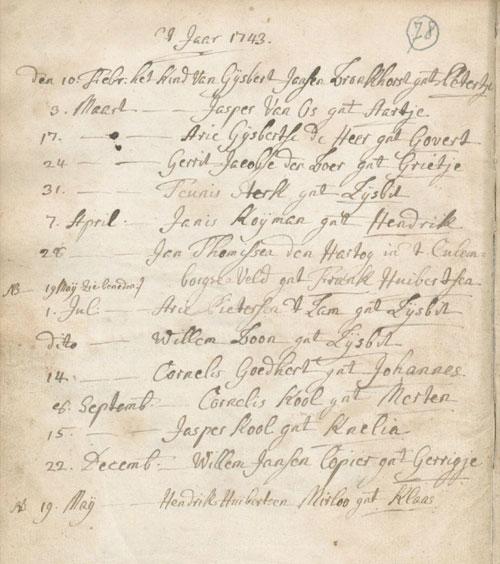 't Jaar 1743.
28
den 10. Febr. het kind van Gijsbert Jansen Bronkhorst gnt Pietertje
3. Maart — Jasper van Os gnt Aartje
17. — Arie Gijsbertse de Heer gnt Govert
24 — Gerrit Jacobse den Boer gnt Grietje
31. — Teunis Sterk gnt Lijsbit
7. April. Janis Kooijman gnt Hendrik
28 — Jan Thomissen den Hartog in 't Culem-
borgse Veld gnt Frank Huibertsen
NB — 19 Maij
1. Jul: — Arie Pietersen 't Lam gnt Lijsbit
dito — Willem Boon gnt Lijsbit
14. — Cornelis Goedhert gnt Johannes
8. Septemb. — Cornelis Kool gnt Merten
15 — Jasper Kool gnt Knelia
22. Decemb: — Willem Jansen Copier gnt Gerrigje
NB 19. Maij — Hendrik Huibertsen Mirloo gnt Klaas